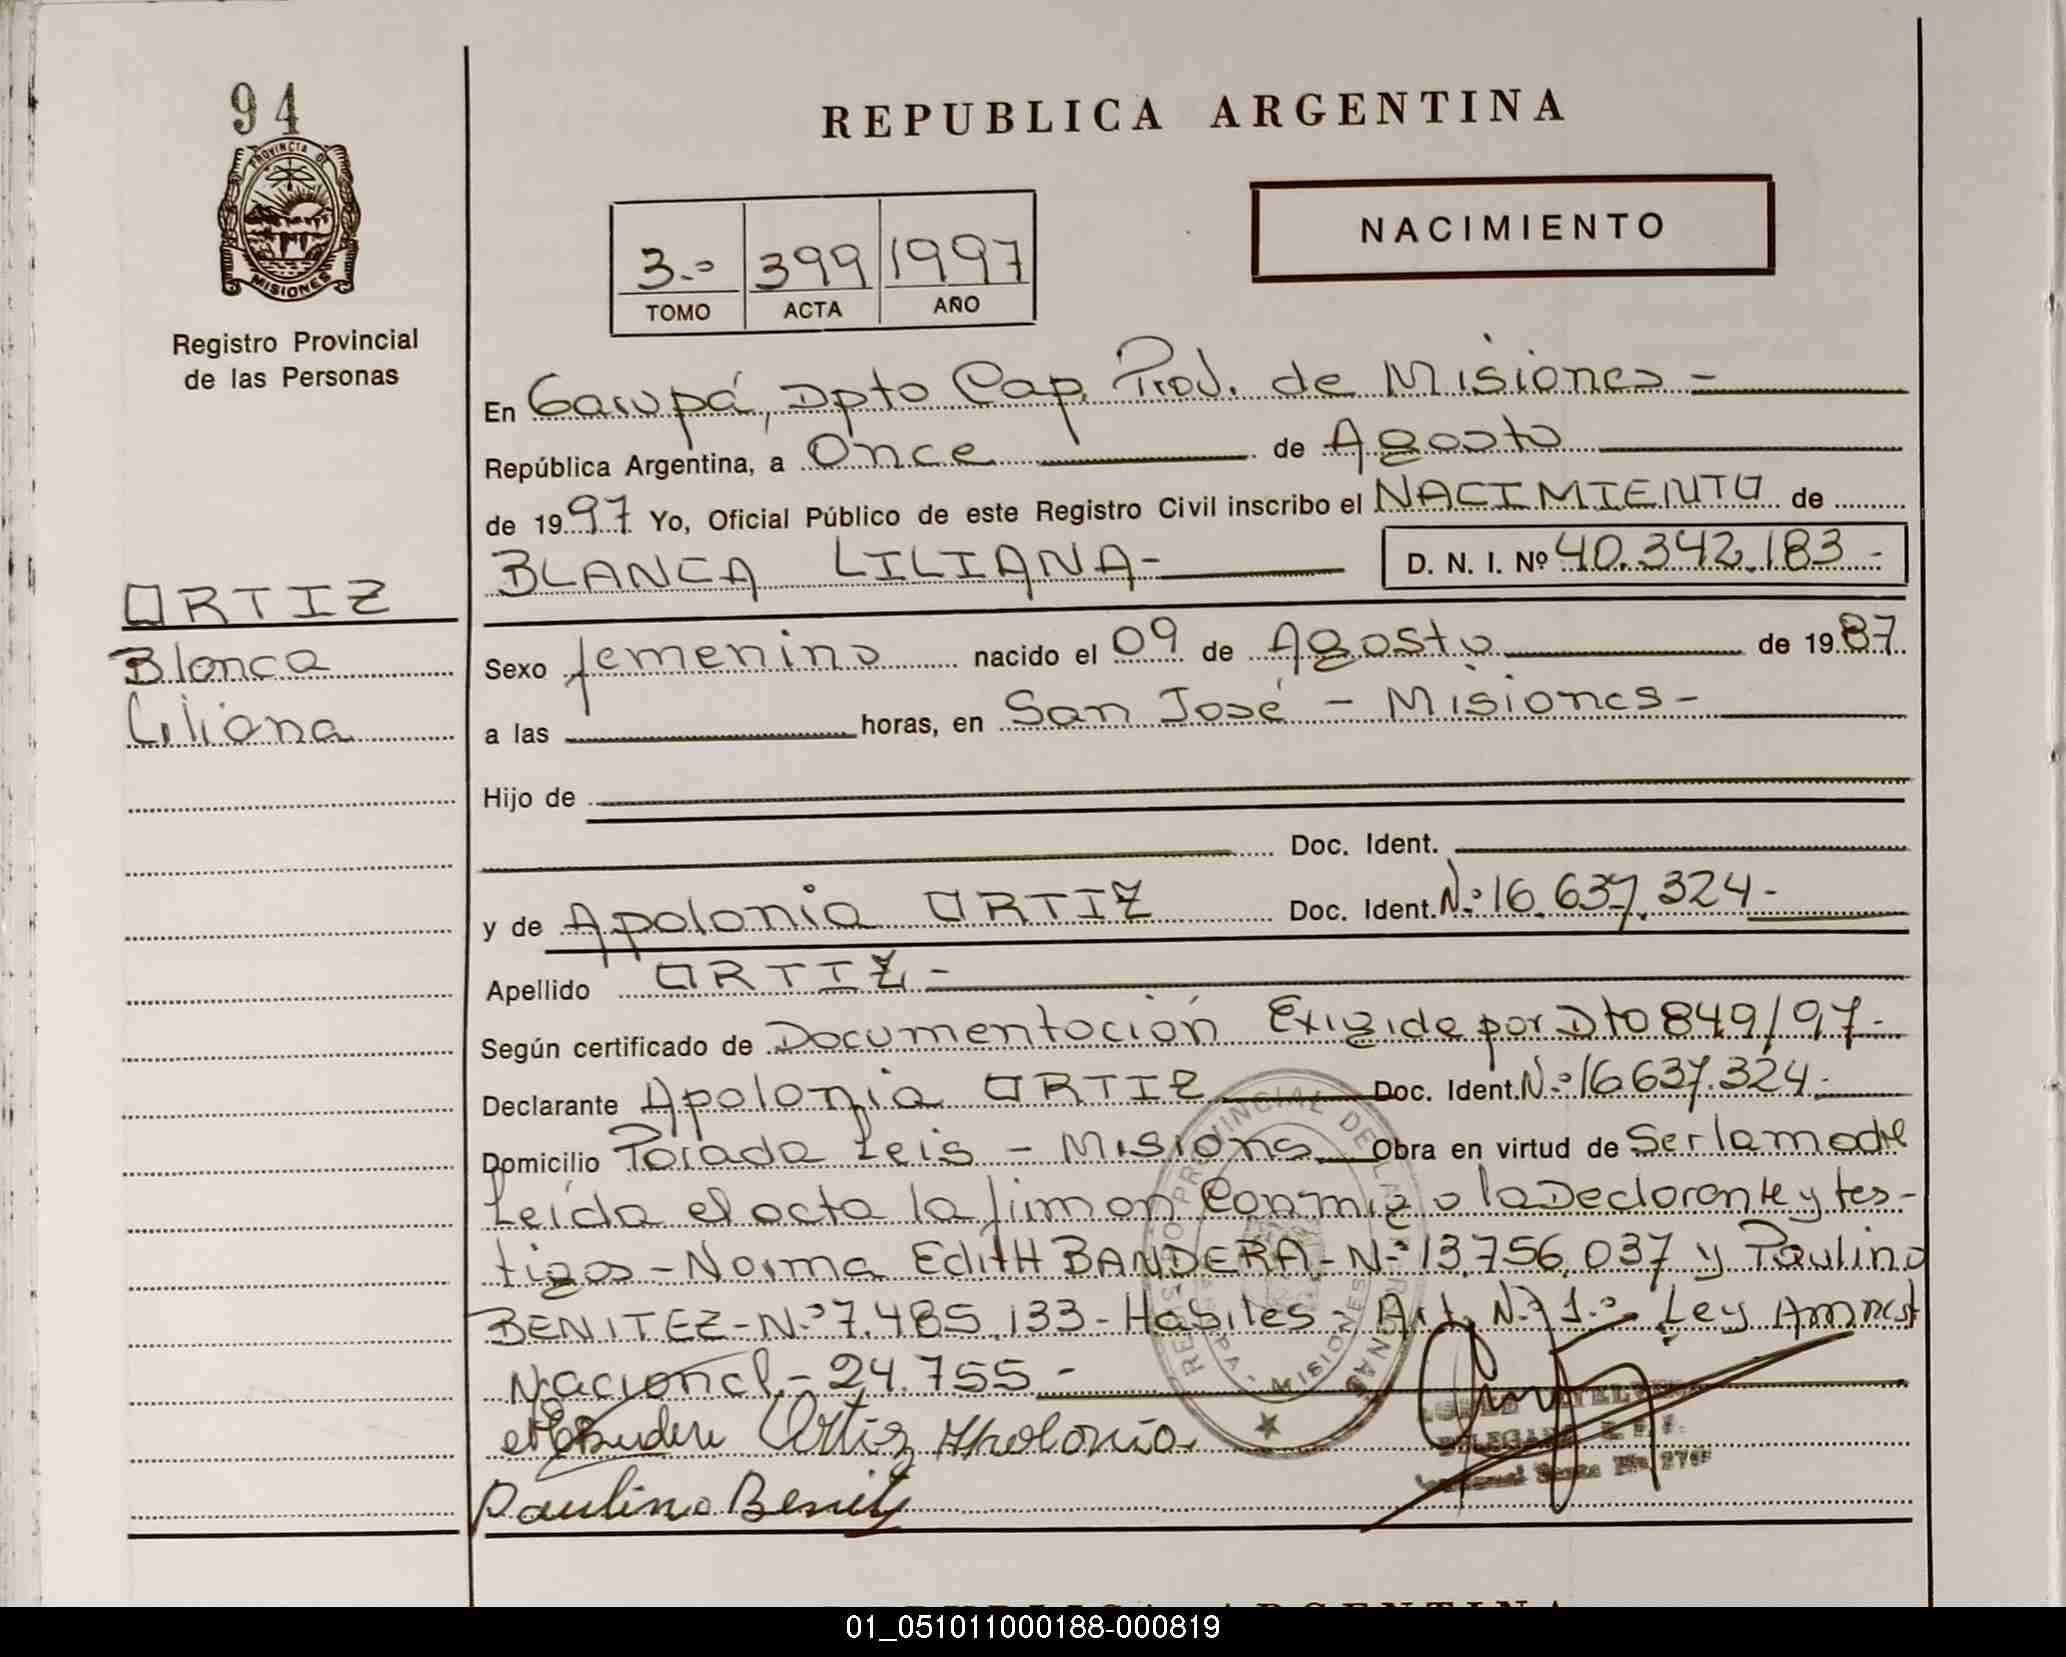 94
PROVINCIA DE
MISIONES
Registro Provincial
de las Personas
REPUBLICA ARGENTINA
NACIMIENTO
3.º 399 1997
TOMO ACTA AÑO
En Garupá, Dpto Cap. Prov. de Misiones -
República Argentina, a Once de Agosto
de 1997 Yo, Oficial Público de este Registro Civil inscribo el NACIMIENTO de
BLANCA LILIANA- D. N. I. Nº 40.342.183-
ORTIZ
Blanca
Liliana
Sexo femenino nacido el 09 de Agosto de 1987
a las horas, en San José - Misiones -
Hijo de
Doc. Ident.
y de Apolonia ORTIZ Doc. Ident. N.º 16.637.324-
Apellido ORTIZ -
Según certificado de Documentación Exigida por Dto 849/97-
Declarante Apolonia ORTIZ Doc. Ident. N.º 16637.324-
Domicilio Parada Leis - Misiones Obra en virtud de Ser la madre
Leída el acta la firman Conmigo la Declarante y tes-
tigos - Norma Edith BANDERA - N.º 13.756.037 y Paulino
BENITEZ - N.º 7.485.133 - Habiles - Art. N.º 1.º - Ley Amnest
Nacional - 24.755 -
Ortiz Apolonia
Paulino Benitez
REGISTRO PROVINCIAL DE LAS PERSONAS
MISIONES
REPUBLICA ARGENTINA
01_051011000188-000819